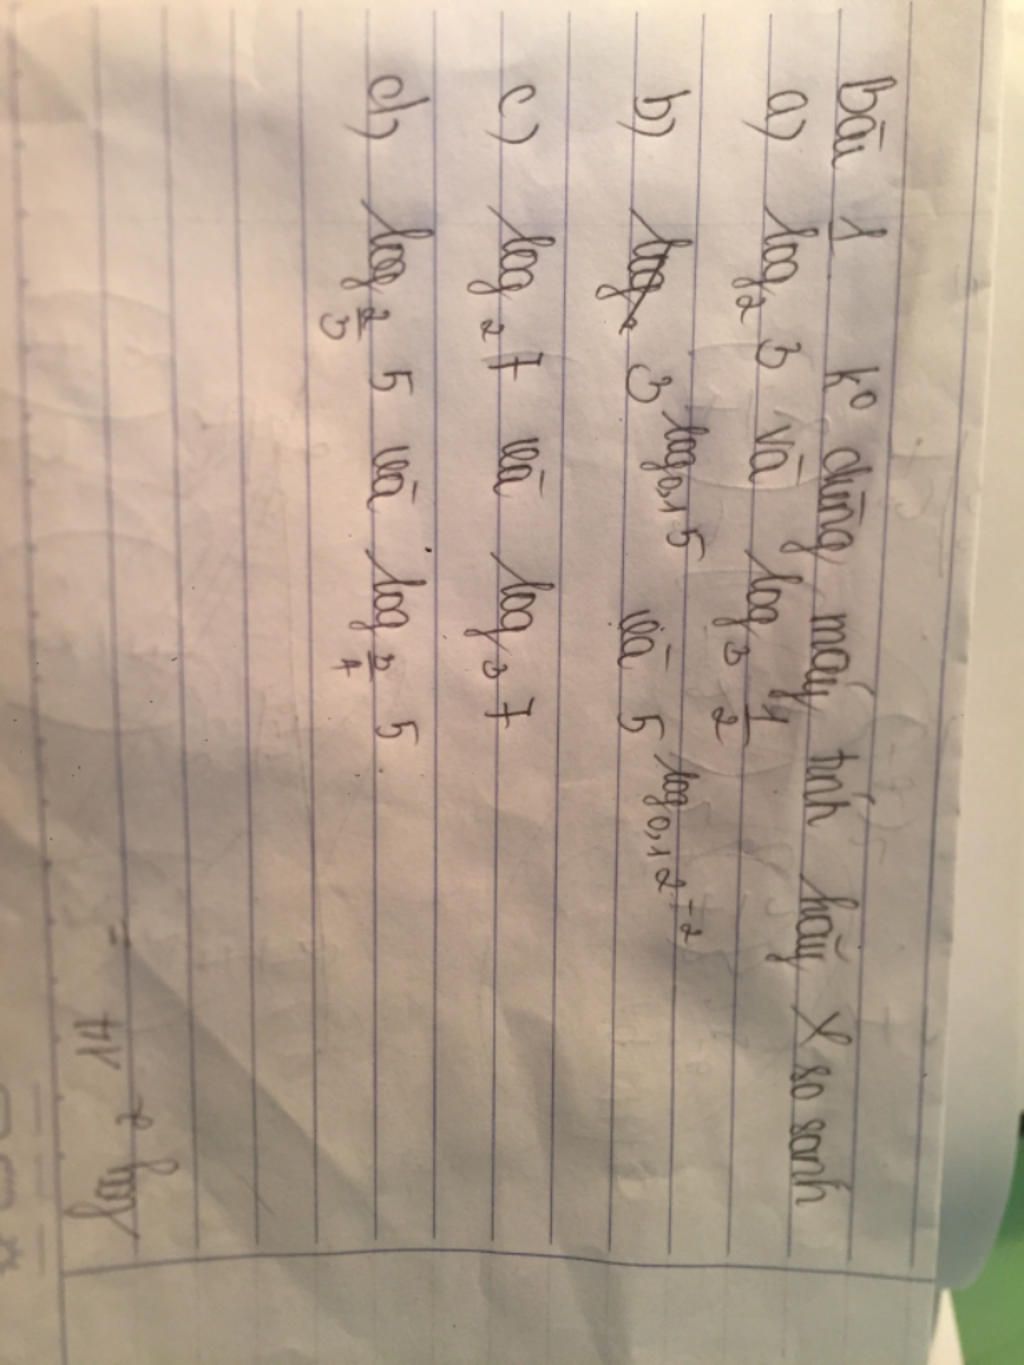 Bài 1 k° dùng máy tính hãy X so sánh
a) log₂ 3 và log₃ 1/2
b) 3^log₀,₁ 5 và 5^log₀,₁ 2⁻²
c) log₂ 7 và log₃ 7
d) log_2/3 5 và log 5
log₂ 14